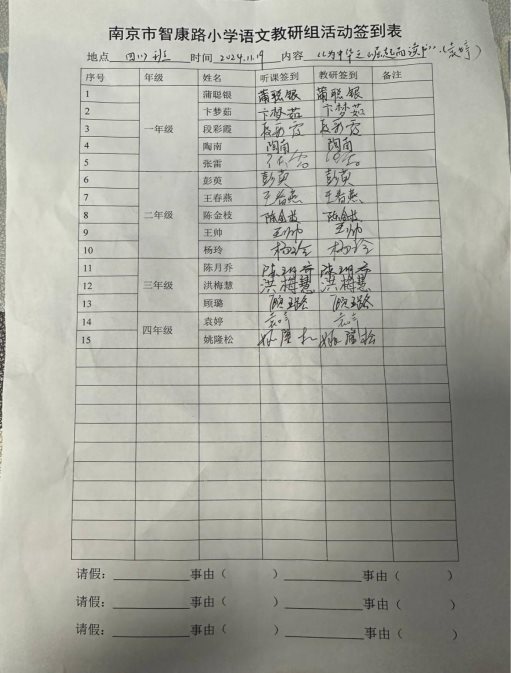 南京市智康路小学语文教研组活动签到表
地点 四(1)班 时间 2024.11.19 内容 《为中华之崛起而读书》(袁婷)
序号 年级 姓名 听课签到 教研签到 备注
1 蒲聪银 蒲聪银 蒲聪银
2 卞梦茹 卞梦茹 卞梦茹
3 一年级 段彩霞 段彩霞 段彩霞
4 陶南 陶南 陶南
5 张雷
6 彭英 彭英 彭英
7 王春燕 王春燕 王春燕
8 二年级 陈金枝 陈金枝 陈金枝
9 王帅 王帅 王帅
10 杨玲 杨玲 杨玲
11 陈月乔 陈月乔 陈月乔
12 三年级 洪梅慧 洪梅慧 洪梅慧
13 顾璐 顾璐 顾璐
14 袁婷 袁婷 袁婷
15 四年级 姚隆松 姚隆松 姚隆松
请假：__________事由（ ） __________事由（ ）
请假：__________事由（ ） __________事由（ ）
请假：__________事由（ ） __________事由（ ）